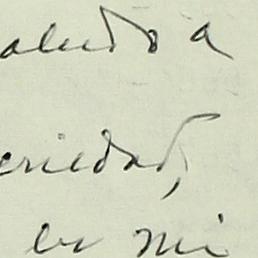 aludo a
eriedad,
en mi